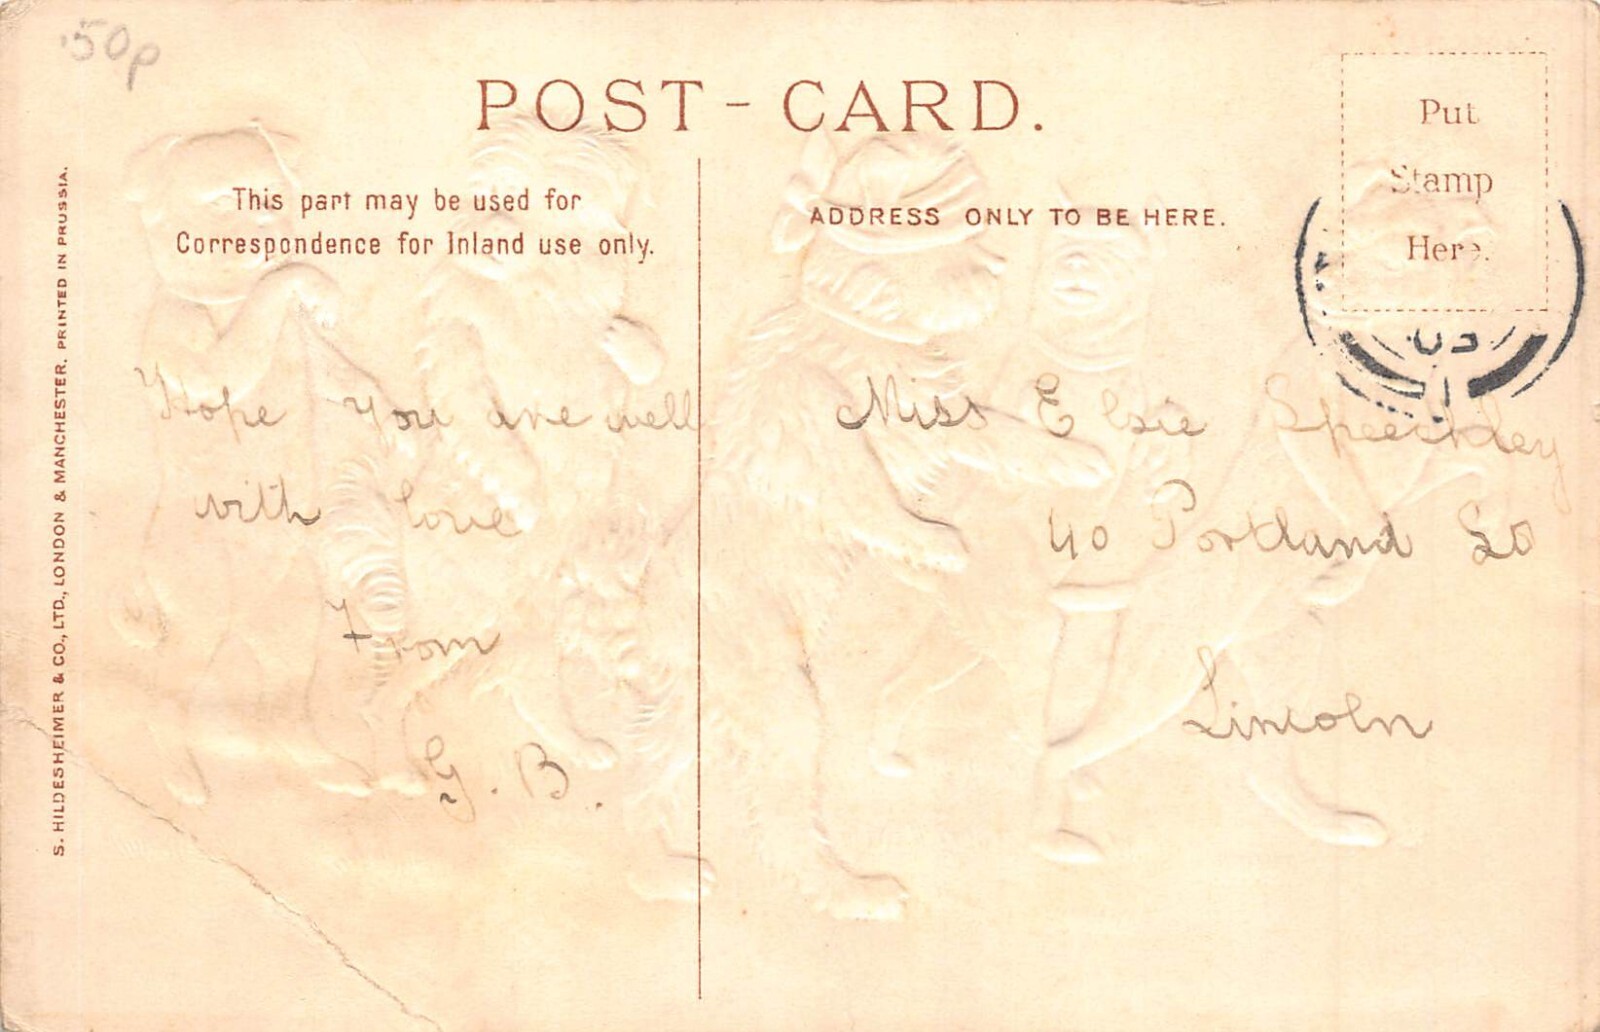 50p
POST-CARD.
Put
Stamp
Here.
This part may be used for
Correspondence for Inland use only.
ADDRESS ONLY TO BE HERE.
S. HILDESHEIMER & CO., LTD., LONDON & MANCHESTER. PRINTED IN PRUSSIA.
Hope you are well
with love
From
G. B.
Miss Elsie
40 Portland
Lincoln